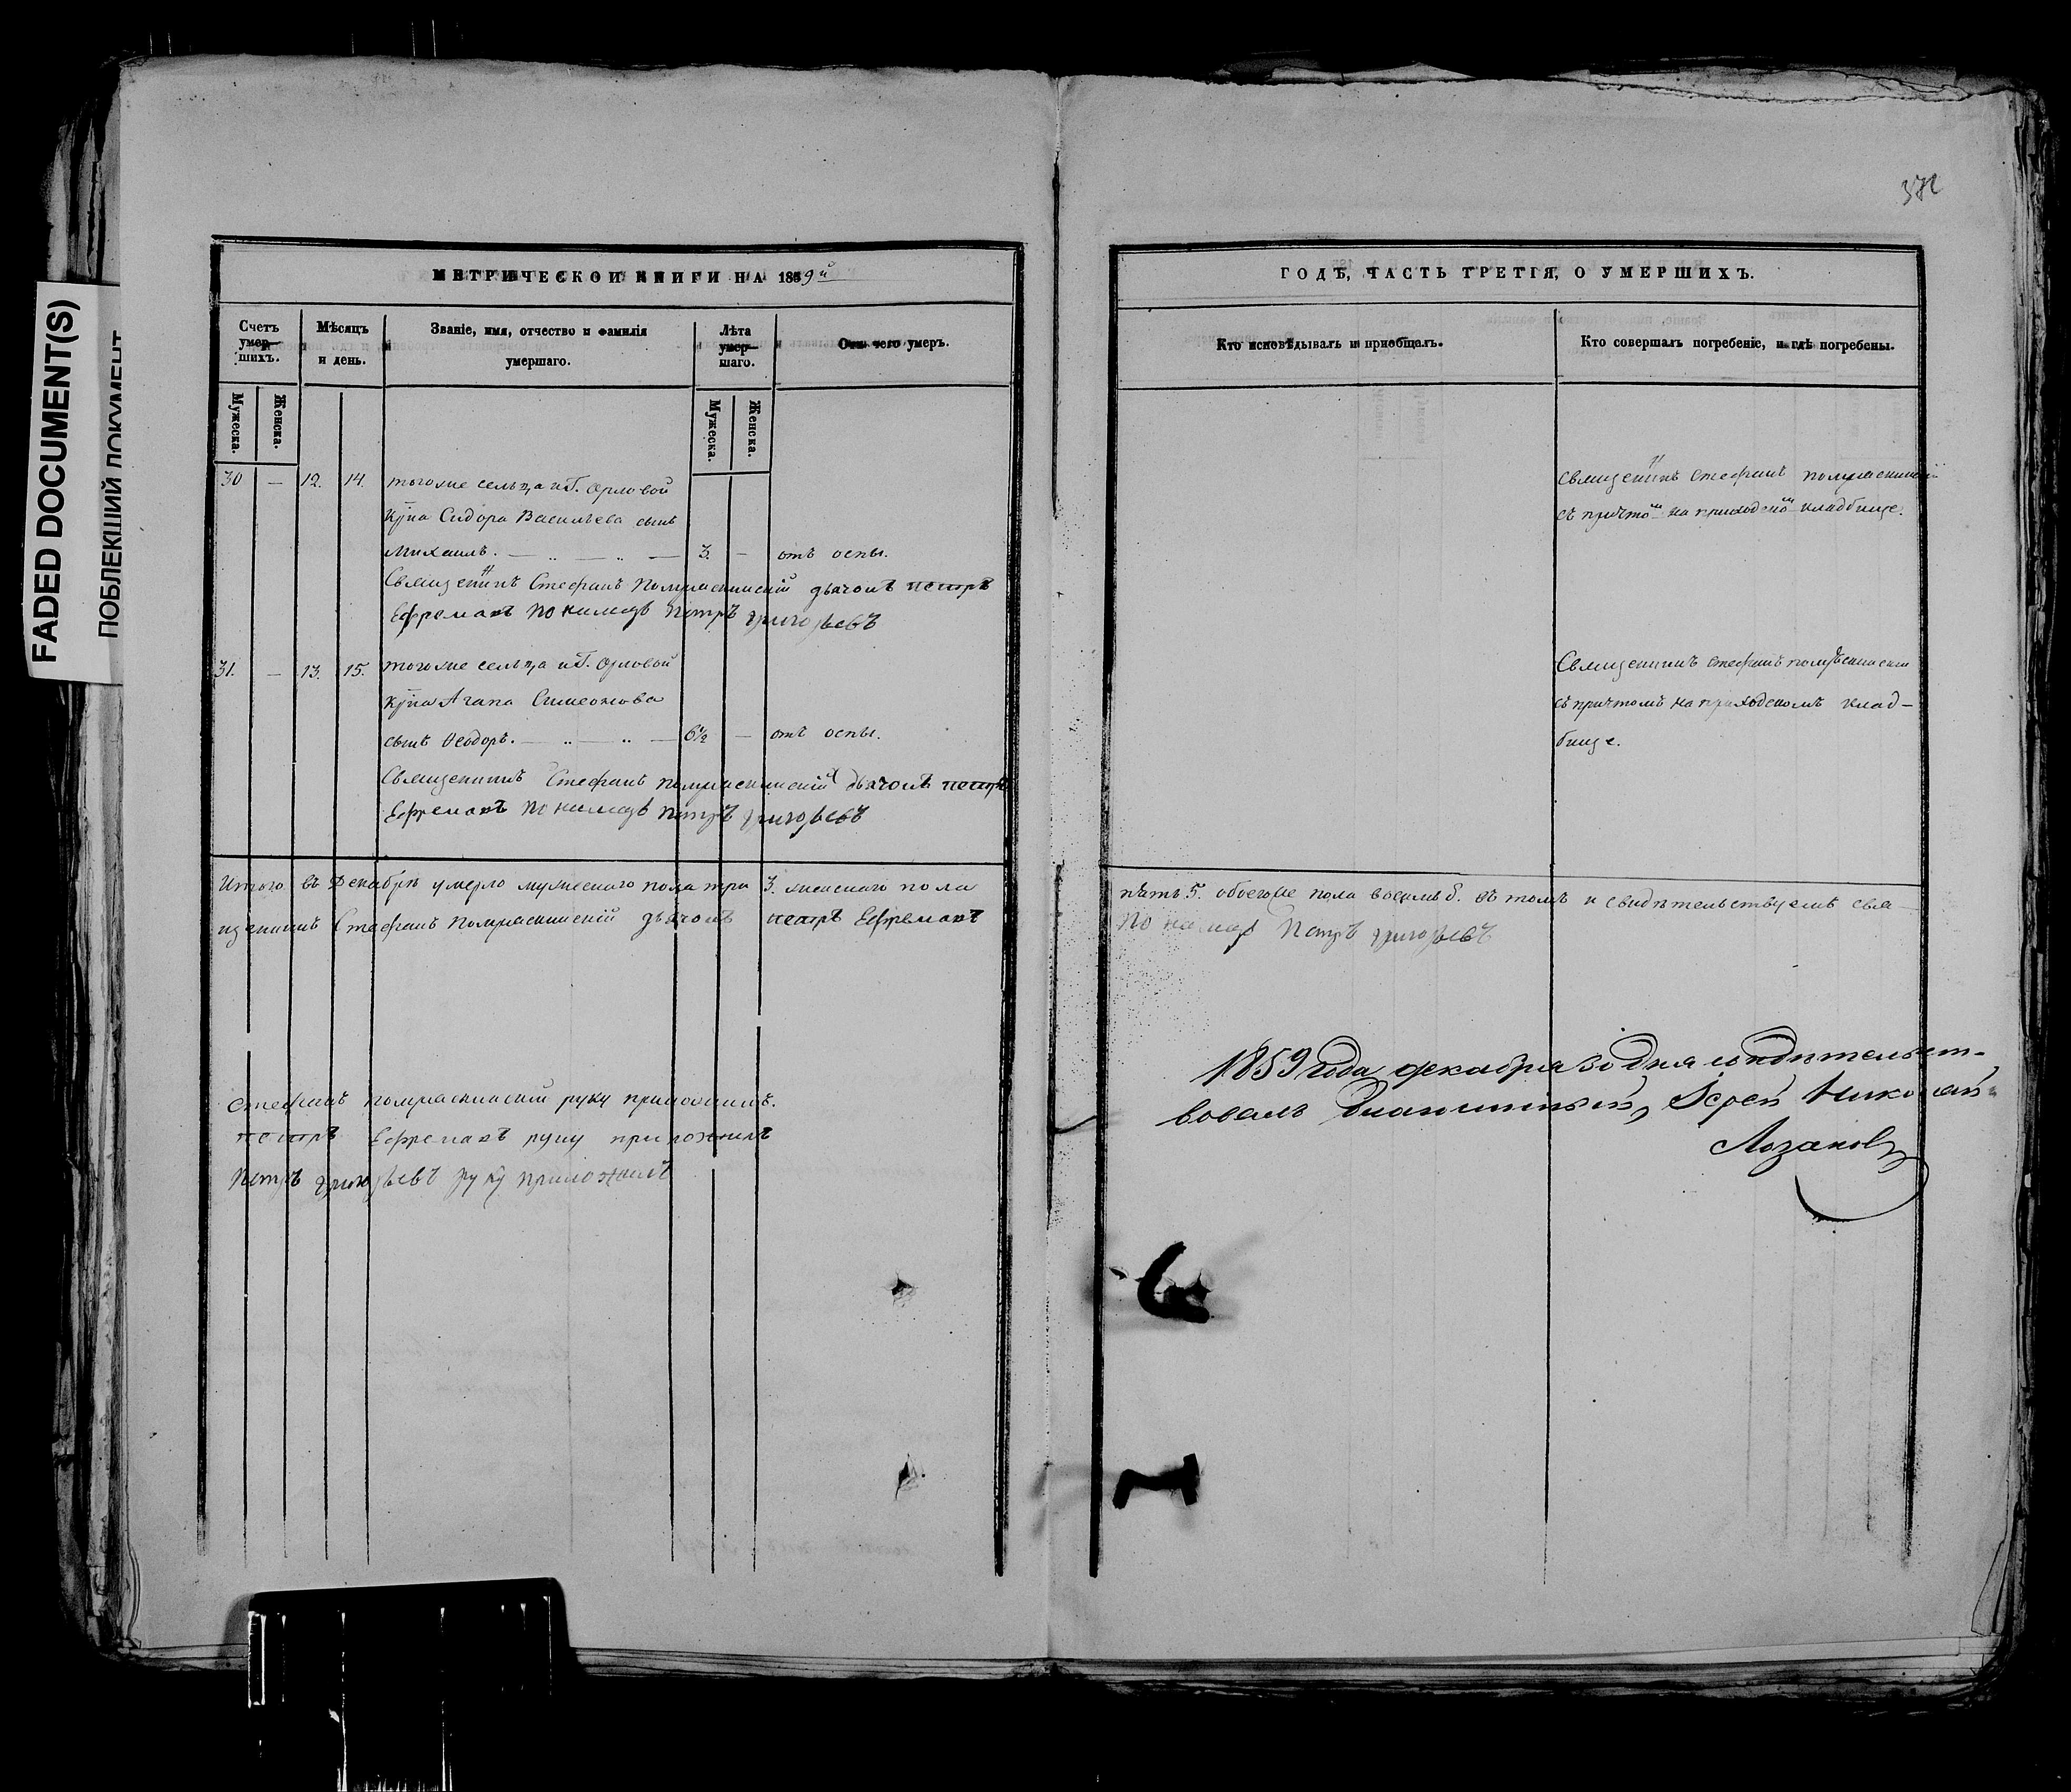 FADED DOCUMENT(S)
ПОБЛЕКШИЙ ДОКУМЕНТ
МЕТРИЧЕСКОЙ КНИГИ НА 1859й
Счетъ умер- шихъ.
Мѣсяцъ и день.
Званіе, имя, отчество и фамилія умершаго.
Лѣта умер- шаго.
Отъ чего умеръ.
Мужеска.
Женска.
Мужеска.
Женска.
30 — 12. 14. тогоже сельца Г. Орловой
Сидора Васильева сынъ
Михаилъ. — 3. — отъ оспы.
Священникъ Стефанъ дьячокъ петръ
Ефремовъ пономарь петръ григорьевъ
31. — 13. 15. тогоже сельца Г. Орловой
Агапа Симеонова
сынъ Ѳеодоръ. — 6½ — отъ оспы.
Священникъ Стефанъ дьячокъ петръ
Ефремовъ пономарь петръ григорьевъ
Итого въ Декабрѣ умерло мужескаго пола три 3. женскаго пола
щенникъ Стефанъ дьячокъ петръ Ефремовъ
Стефанъ руку приложилъ.
петръ Ефремовъ руку приложилъ
петръ григорьевъ руку приложилъ
372
ГОДЪ, ЧАСТЬ ТРЕТІЯ, О УМЕРШИХЪ.
Кто исповѣдывалъ и пріобщалъ.
Кто совершалъ погребеніе, и гдѣ погребены.
Священникъ Стефанъ
съ причтом на приходском кладбище.
Священникъ Стефанъ
съ причтомъ на приходскомъ клад-
бище.
пять 5. обоего пола восемь 8. въ томъ и свидѣтельствуемъ свя-
пономарь петръ григорьевъ
1859 года декабря 30 дня свидѣтельст-
вовалъ Благочинный, Іерей Николай
Лозанов